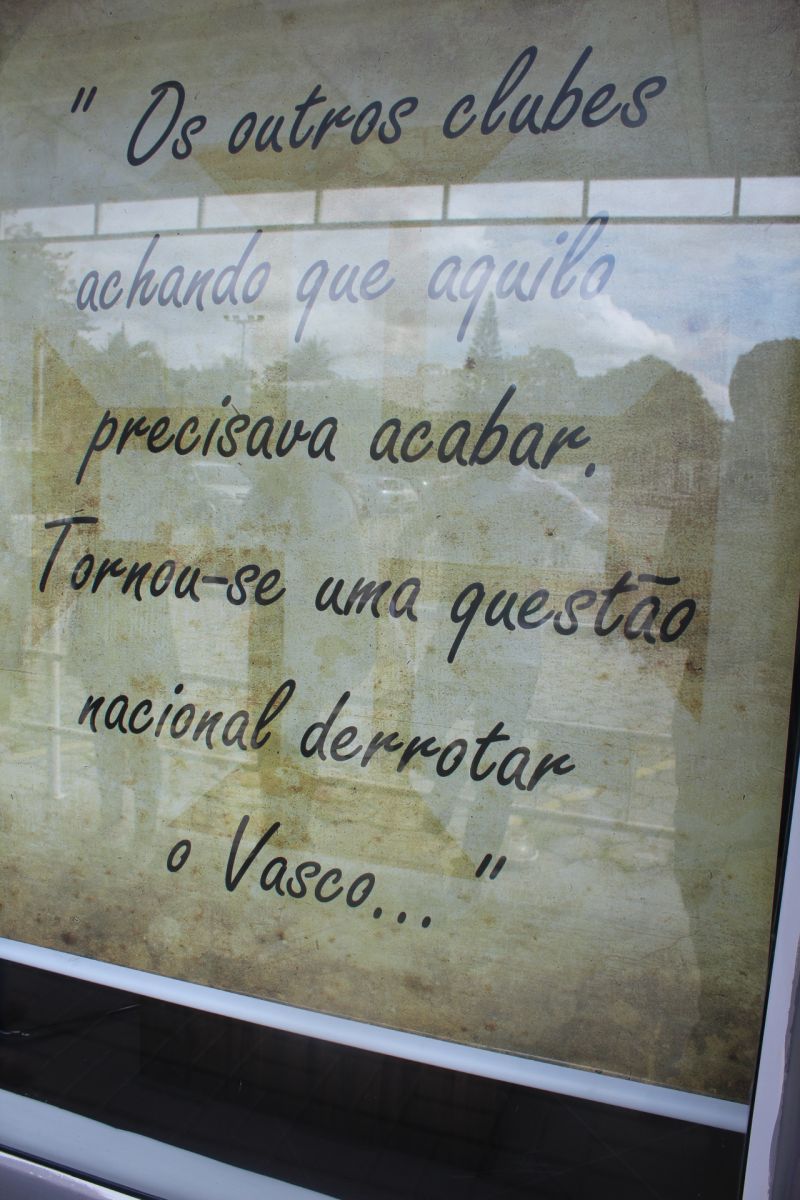 " Os outros clubes
achando que aquilo
precisava acabar.
Tornou-se uma questão
nacional derrotar
o Vasco... "